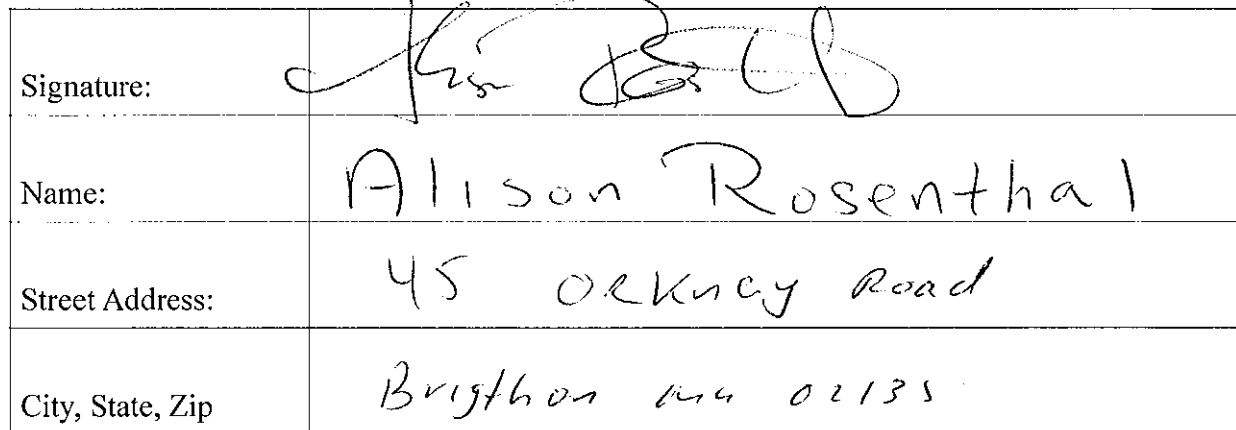 Signature:
Name: Alison Rosenthal
Street Address: 45 Orknay Road
City, State, Zip Brigthon ma 02135